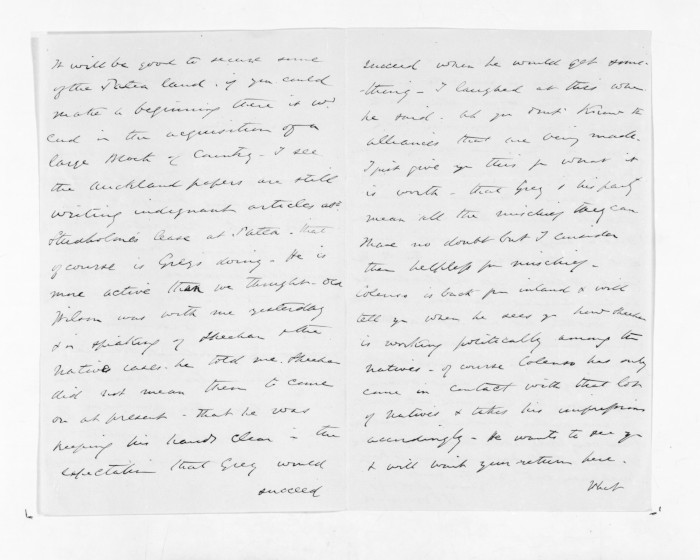 It will be good to secure some
of the Patea land. if you could
make a beginning there it wd.
end in the acquisition of a
large Block of Country - I see
the Auckland papers are still
writing indignant articles abt
Studholme's lease at Patea. that
of course is Grey's doing - He is
more active than we thought - Old
Wilson was with me yesterday
& on speaking of Sheehan & the
Native cases. he told me. Sheehan
did not mean them to come
on at present - that he was
keeping his hands clear in the
expectation that Grey would
succeed
succeed when he would get some-
-thing - I laughed at this when
he said. Ah you don't know the
alliances that are being made.
I just give you this for what it
is worth - that Grey & his party
mean all the mischief they can
I have no doubt but I consider
them helpless for mischief -
Colenso is back from inland & will
tell you when he sees you how Sheehan
is working politically among the
natives - of course Colenso has only
come in contact with that lot
of natives & takes his impressions
accordingly - He wants to see you
& will wait your return here.
What